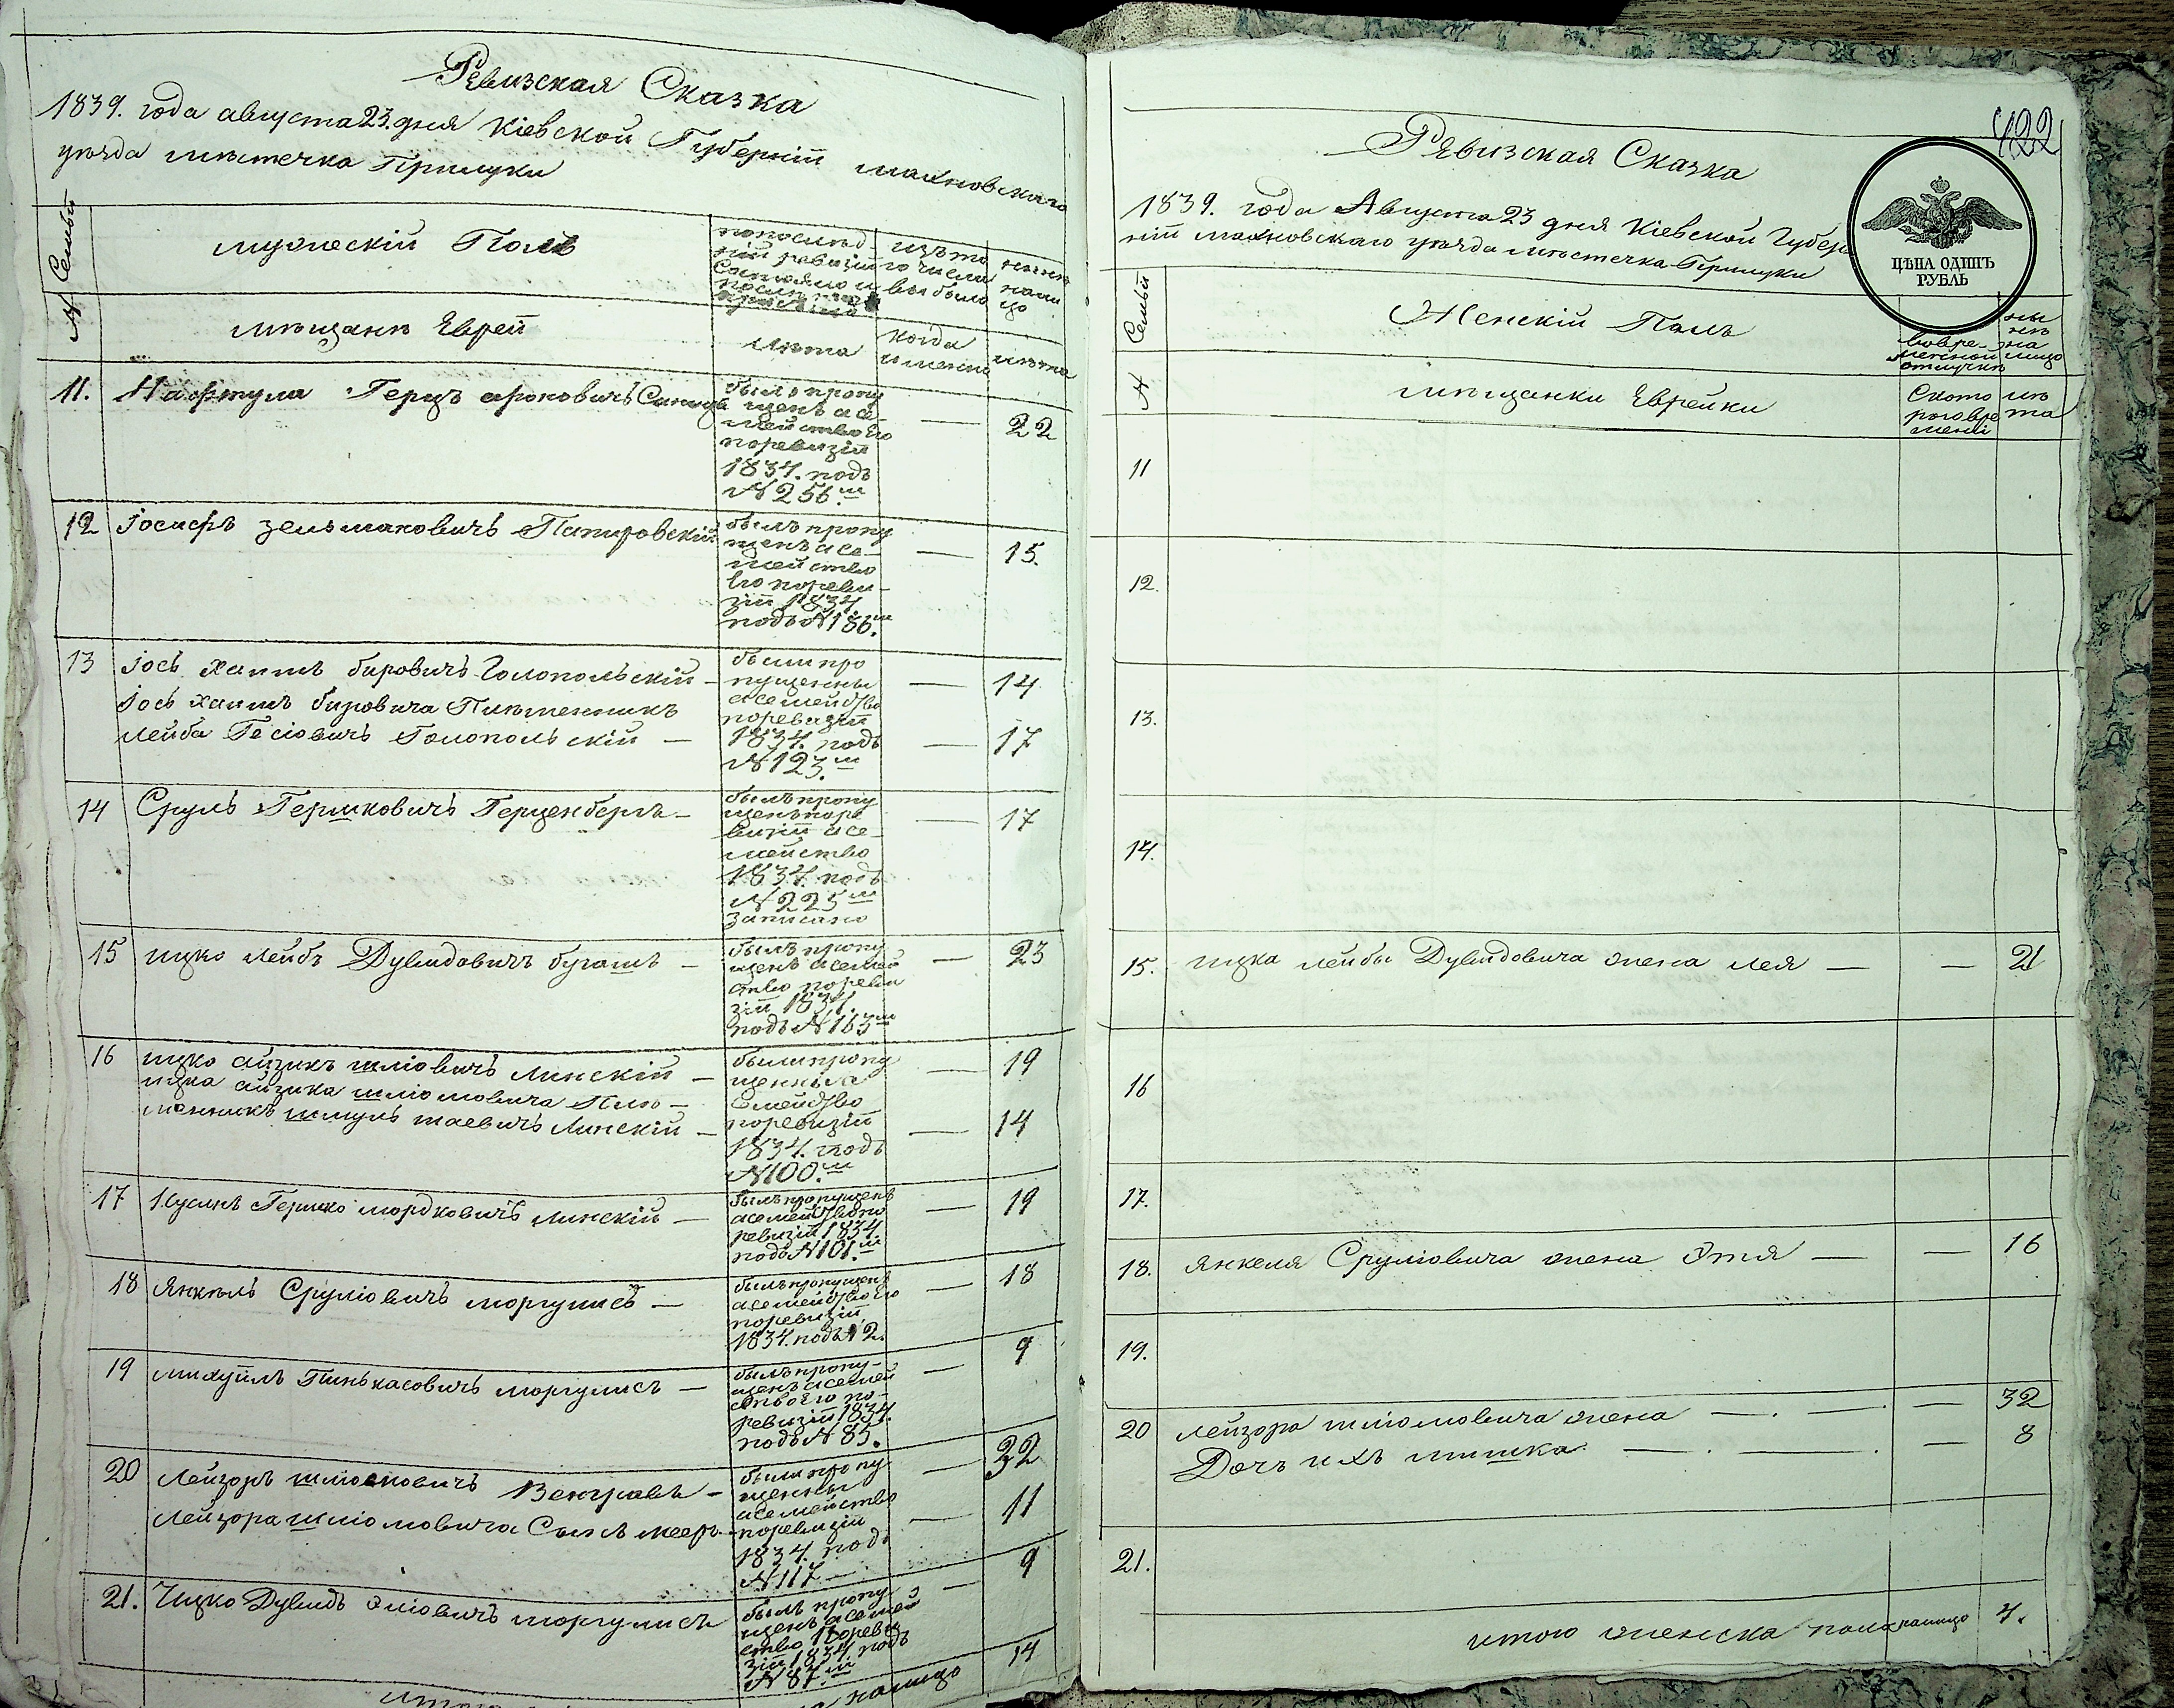 Ревизская Сказка
1839. года августа 23. дня Кіевской Губерніи махновскаго
уѣзда мѣстечка Прилуки
№ Семьи
мужескій Полъ
по послѣд-
ній ревизіи
Состояло и
послѣ
изъ то
го числа
выбыло
нынѣ
нали
цо
мѣщанъ Еврей
лѣта
когда
именно
лѣта
11. Нафтула Герцъ ароновичъ
былъ пропу
щенъ а се-
мейство Его
по ревизіи
1834. подъ
№ 256.м
— 22
12 Іосифъ зельмановичъ Папировскій
былъ пропу
щенъ а се-
мейство
Его по реви-
зіи 1834
подъ № 186.м
— 15.
13 Іось хаимъ беровичъ Голопольскій —
Іось хаимъ беровича Племенникъ
Лейба Гесіовичъ Голопольскій —
были про
пущенны
а семейство
по ревизіи
1834. подъ
№ 123.м
— 14
— 17
14 Сруль Гершковичъ Герценбергъ —
былъ пропу
щенъ по ре
визіи а се-
мейство
1834. подъ
№ 225м
записано
— 17
15 ицко Лейбъ Дувидовичъ —
былъ пропу
щенъ а семей
ство по реви
зіи 1834.
подъ № 163м
— 23
16 ицко айзикъ шліовичъ Линскій —
ицка айзика шліомовича Пле-
менникъ шмуль таевичъ Линскій —
были пропу
щенны а
Семейство
по ревизіи
1834. подъ
№ 100.м
— 19
— 14
17 Нусинъ Гершко мордковичъ Линскій —
былъ пропущенъ
а семейство по
ревизіи 1834
подъ № 101.м
— 19
18 Янкель Сруліовичъ моргулисъ —
былъ пропущенъ
а семейство Его
по ревизіи
1834. подъ № 2.
— 18
19 михуилъ Пинькасовичъ моргулисъ —
былъ пропу-
щенъ а семей
ство Его по-
ревизіи 1834.
подъ № 85.
— 9
20 Лейзоръ шліомовичъ Венгравъ —
Лейзора шліомовича Сынъ мееръ —
были пропу
щенны
а семейство
по ревизіи
1834. подъ
№ 117 —
— 32
— 11
21. Ицко Дувидъ Эліовичъ моргулисъ
былъ пропу
щенъ а семей
ство По реви
зіи 1834 подъ
№ 87.м
— 9
налицо 14
422
Ревизская Сказка
1839. года Августа 23 дня Кіевской Губер
ніи махновскаго уѣзда мѣстечка Прилуки
ЦѢНА ОДИНЪ
РУБЛЬ
№ Семьи
Женскій Полъ
во вре-
менной
отлучкѣ
ны
нѣ
на
лицо
мѣщанки Еврейки
Съкото
рого вре
мени
лѣ
та
11
12.
13.
14.
15. ицка лейбы Дувидовича жена лея — — 21
16
17.
18. янкеля Сруліовича жена Этя — — 16
19.
20 лейзора шліомовича жена — . — . — 32
Дочь ихъ мишка — . — . — 8
21.
итого женска пола налицо 4.